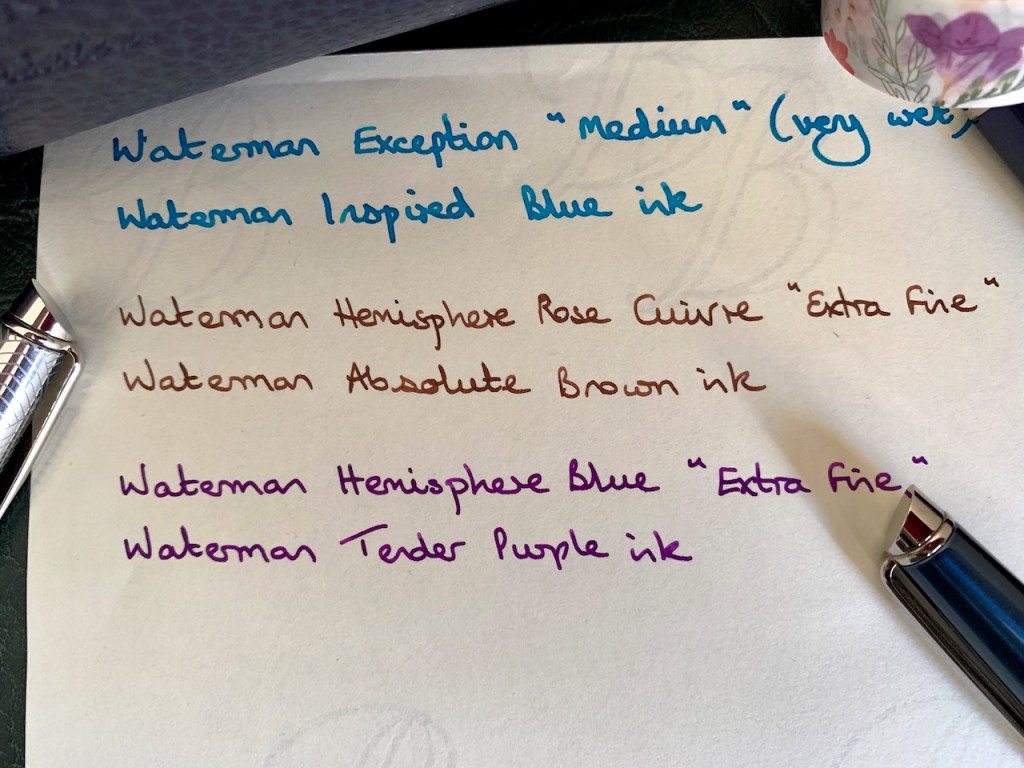 Waterman Exception "Medium" (very wet)
Waterman Inspired Blue ink
Waterman Hemisphere Rose Cuivre "Extra Fine"
Waterman Absolute Brown ink
Waterman Hemisphere Blue "Extra Fine"
Waterman Tender Purple ink